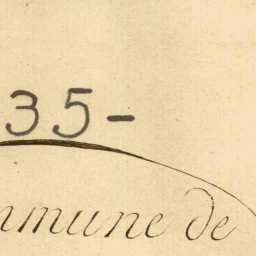 35-
mmune de